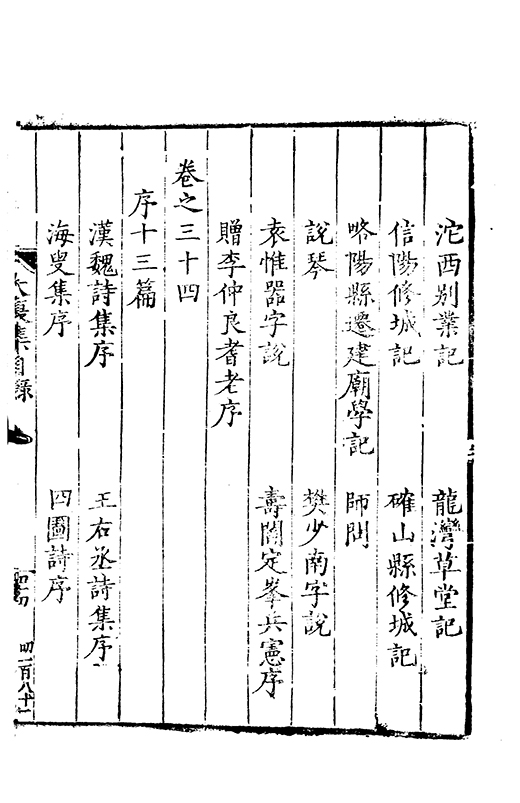 沱西别業記　龍灣草堂記
信陽修城記　確山縣修城記
略陽縣遷建廟學記　師問
說琴　樊少南字說
袁惟器字說　壽閻定峯兵憲序
贈李仲良耆老序
卷之三十四
序十三篇
漢魏詩集序　王右丞詩集序
海叟集序　四圖詩序
大復集目錄
四一百八十一